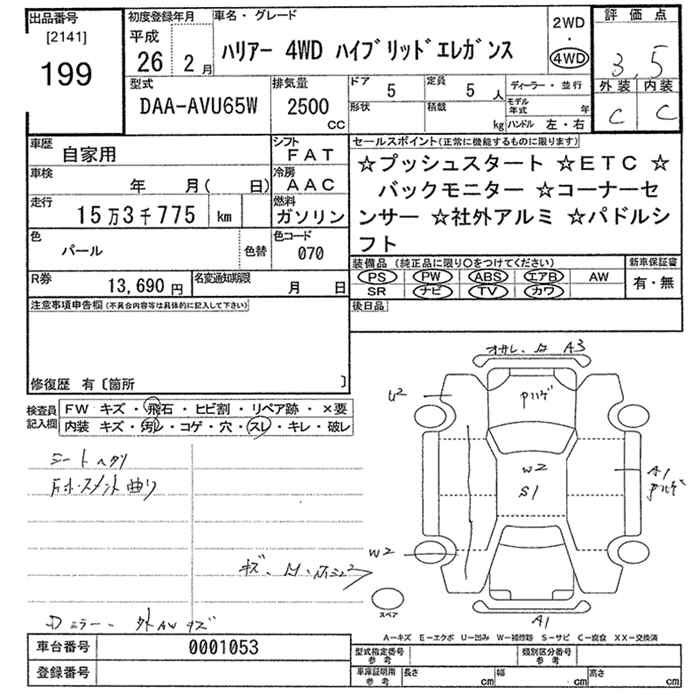 出品番号
[2141]
199
初度登録年月
平成
26 2月
車名・グレード
ハリアー 4WD ハイブリッドエレガンス
2WD
・
4WD
評価点
3.5
外装 内装
C C
型式
DAA-AVU65W
排気量
2500
CC
ドア
5
定員
5人
形状
積載
kg
ディーラー・並行
モデル年式 年
ハンドル 左・右
車歴
自家用
シフト
FAT
車検
年 月( 日)
冷房
AAC
走行
15万3千775 km
燃料
ガソリン
色
パール
色替
色コード
070
R券
13,690円
名変通知期限
月 日
セールスポイント(正常に機能するものに限ります)
☆プッシュスタート ☆ETC ☆
バックモニター ☆コーナーセ
ンサー ☆社外アルミ ☆パドルシ
フト
装備品 (純正品に限り〇をつけてください)
PS PW ABS エアB AW
SR ナビ TV カワ
新車保証書
有・無
後日品
注意事項申告欄(不具合内容等は具体的に記入して下さい)
修復歴 有〔箇所 〕
検査員記入欄
FW キズ・飛石・ヒビ割・リペア跡・×要
内装 キズ・汚レ・コゲ・穴・スレ・キレ・破レ
シートヘタリ
曲り
Dミラー
外AWキズ
A3
U2
W2
S1
A1
W2
A1
スペア
A-キズ E-エクボ U-凹み W-補修跡 S-サビ C-腐食 XX-交換済
車台番号
0001053
登録番号
型式指定番号
参考
類別区分番号
参考
車庫証明用
参考
長さ cm
幅 cm
高さ cm